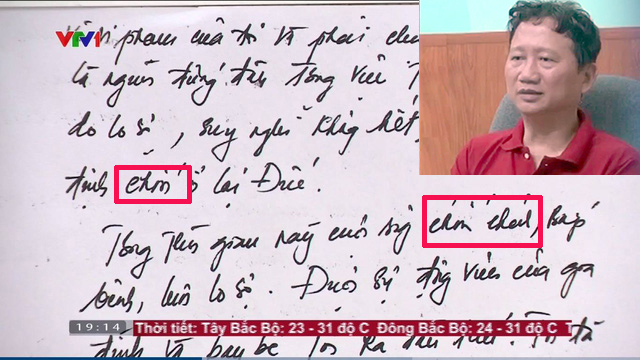 VTV1
vi phạm của tôi và phải
là người đứng đầu trong việc
do lo sợ, suy nghĩ không hết,
định ở lại Đức.
Trong thời gian này cuộc sống
bênh, luôn lo sợ. Được sự động viên của gia
đình và bạn bè tôi ra đầu thú. Tôi đã
19:14 Thời tiết: Tây Bắc Bộ: 23 - 31 độ C Đông Bắc Bộ: 24 - 31 độ C T